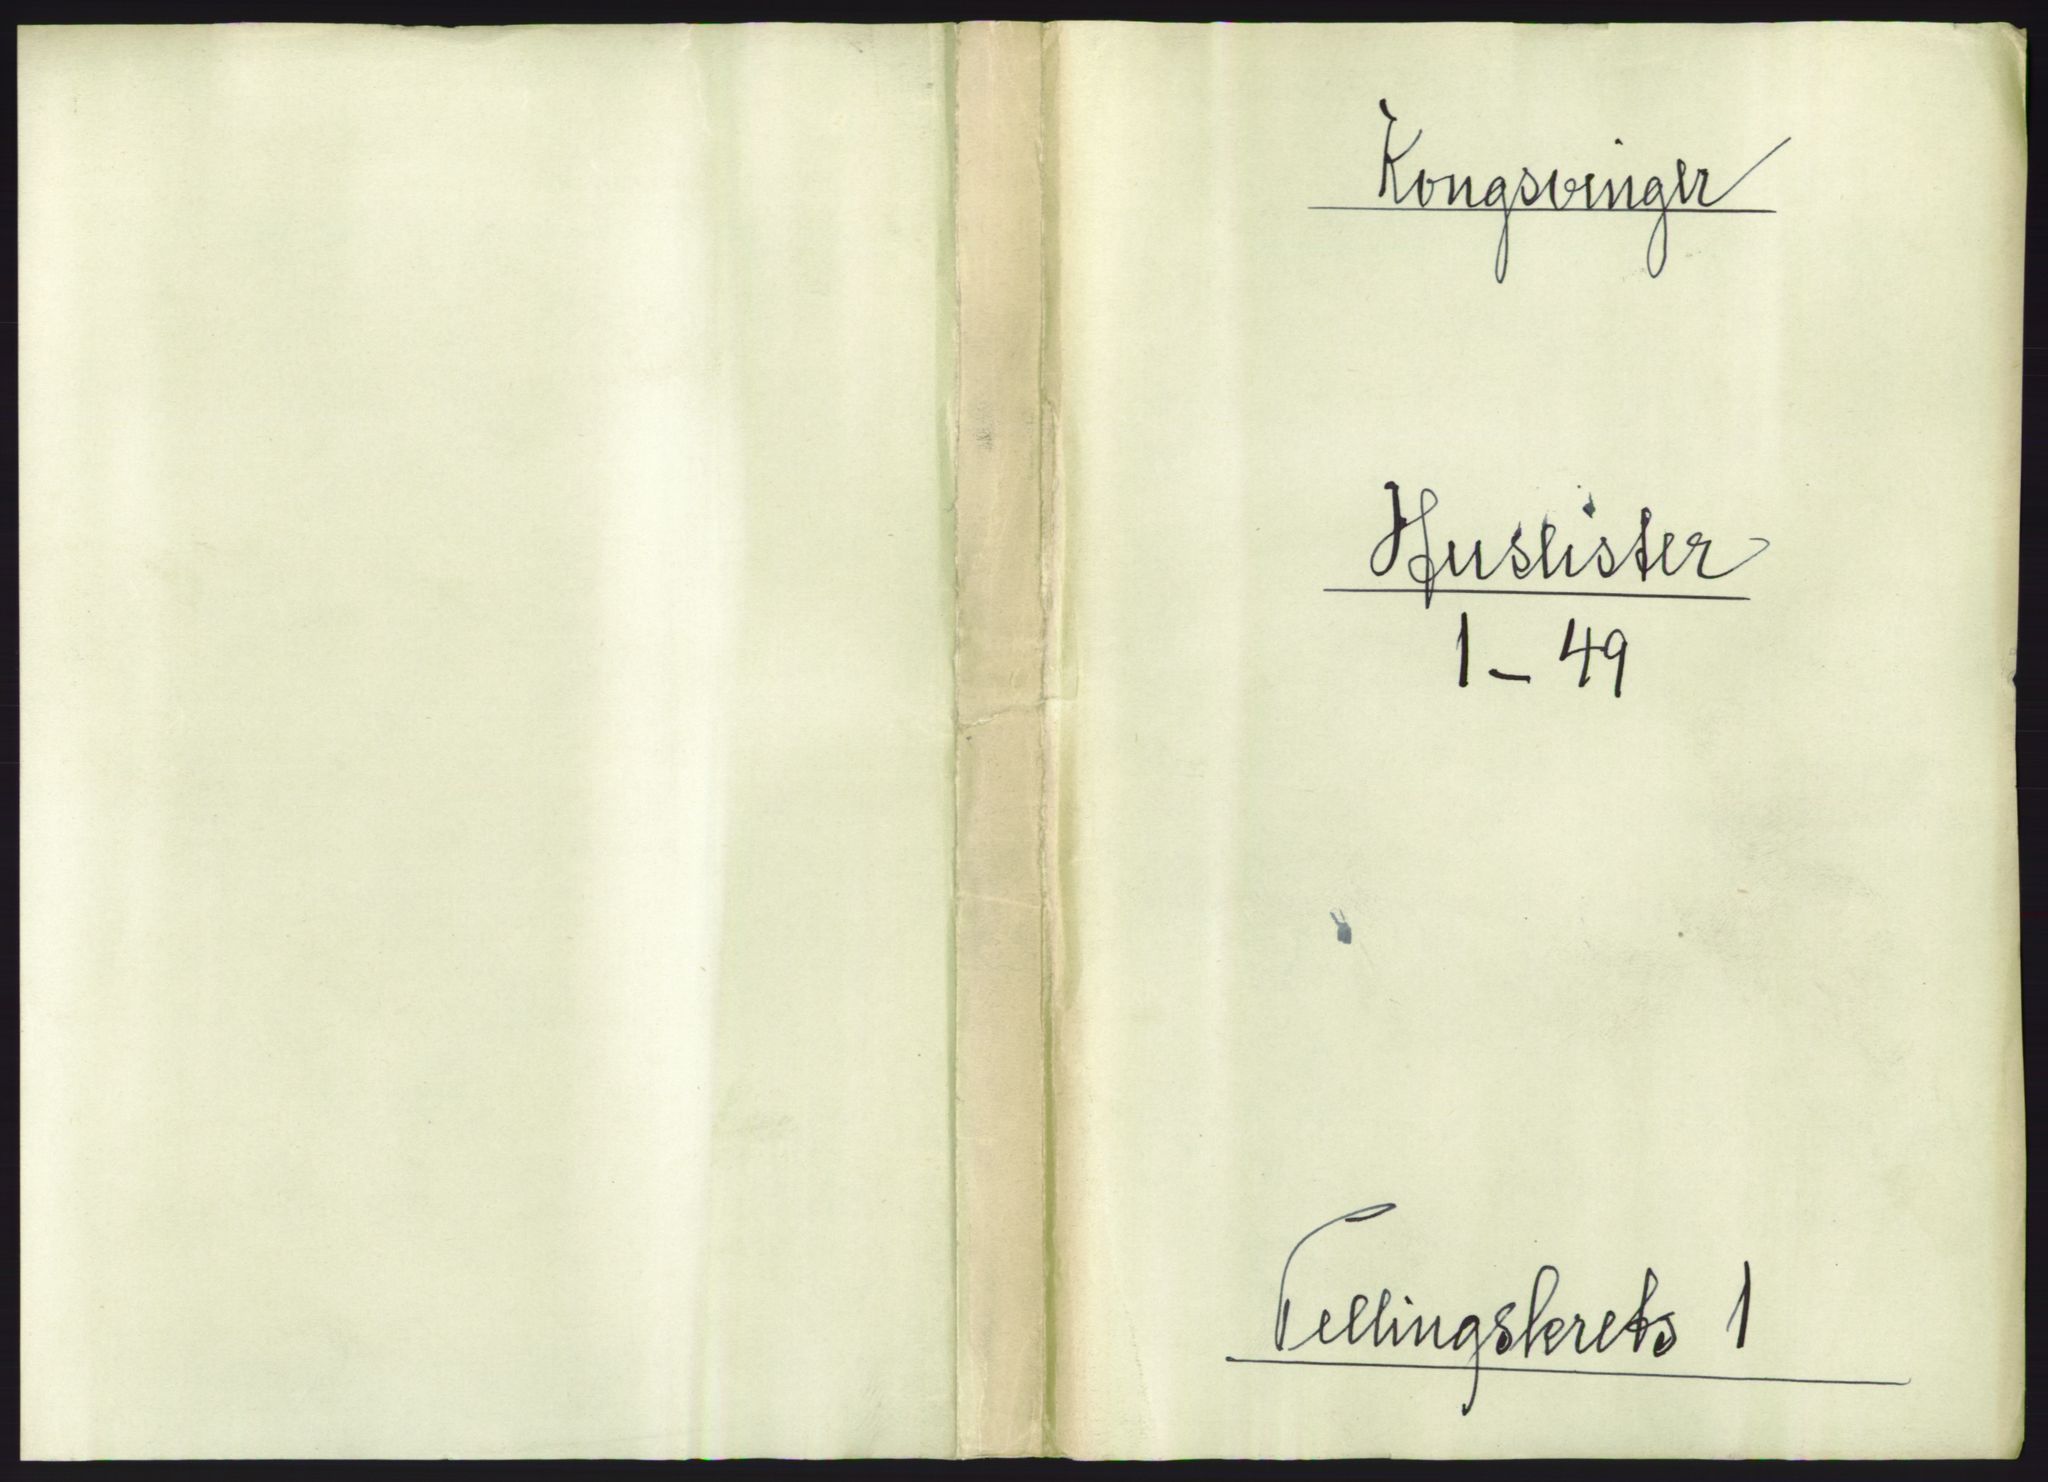 Kongsvinger
Huslister
1 - 49
Tellingskrets 1